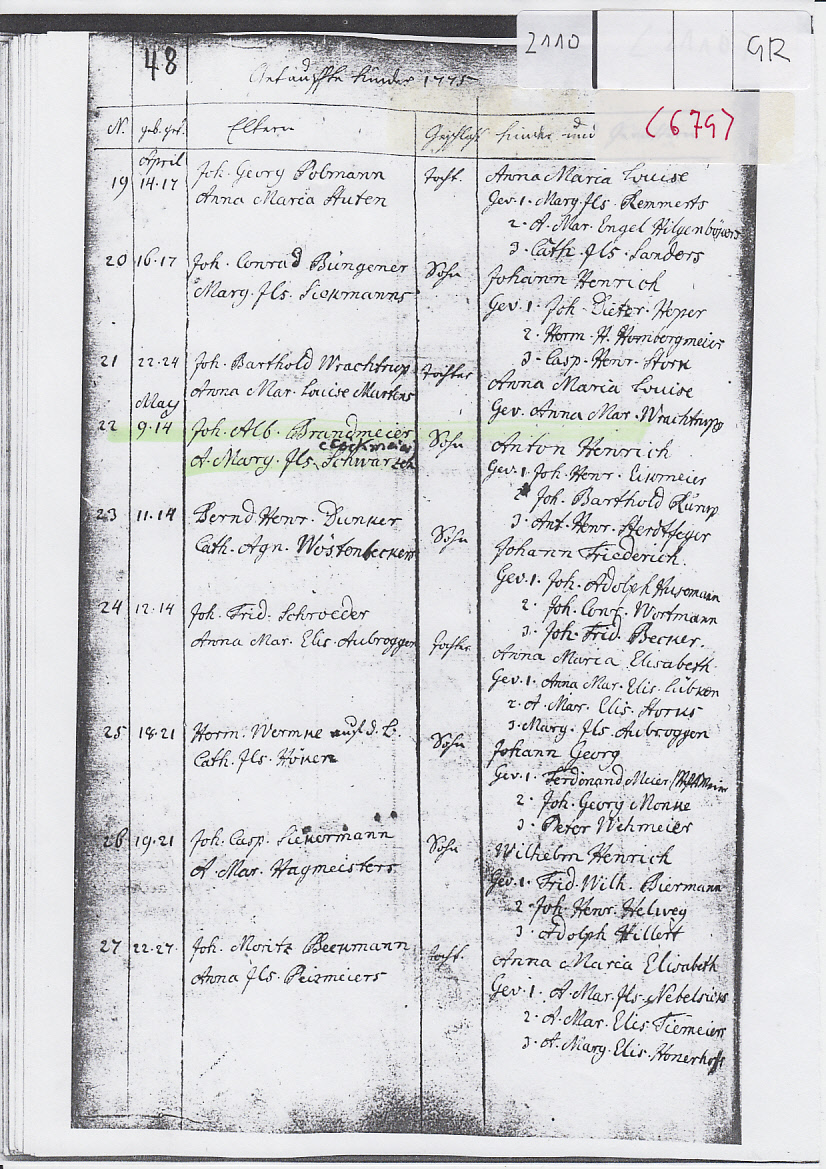 2110
GR
48
Getauffte Kinder 1775
(679)
N. geb. get. Eltern Geschlecht Kinder und
April
19 14.17 Joh. Georg Polmann tocht. Anna Maria Louise
Anna Maria Huten Gev. 1. Marg. Ils. Remmerts
2. A. Mar. Engel Hilgenbökers
3. Cath. Ils. Sanders
20 16.17 Joh. Conrad Büngener Sohn Johann Henrich
Marg. Ils. Siekmanns Gev. 1. Joh. Dieter Hoper
2. Herm. H. Hombergmeier
3. Casp. Henr. Stork
21 22.24 Joh. Barthold Wrachtrup tochter Anna Maria Louise
Anna Mar. Louise Martens Gev. Anna Mar. Wrachtrups
May
22 9.14 Joh. Alb. Brandmeier Sohn Anton Henrich
A. Marg. Ils. Schwarzen Gev. 1 Joh. Henr. Eikmeier
2 Joh. Barthold Rump
3. Ant. Henr. Herdtfeger
23 11.14 Bernd Henr. Dunker Sohn Johann Friederich.
Cath. Agn. Wöstenbeckers Gev. 1. Joh. Adolph Husemann
2. Joh. Conr. Wortmann
3. Joh. Frid. Becker.
24 12.14 Joh. Frid. Schroeder tochter Anna Maria Elisabeth
Anna Mar. Elis. Aubroggen Gev. 1. Anna Mar. Elis. Lübken
2. A. Mar. Elis. Horks
3. Marg. Ils. Aubroggen
25 18.21 Herm. Wermke auf d. B. Sohn Johann Georg
Cath. Ils. Höker Gev. 1. Ferdinand Meier
2. Joh. Georg Monke
3. Peter Wehmeier
26 19.21 Joh. Casp. Siekermann Sohn Wilhelm Henrich
A. Mar. Hagmeisters Gev. 1. Frid. Wilh. Biermann
2. Joh. Henr. Helweg
3. Adolph Hillert
27 22.27. Joh. Moritz Beekmann tocht. Anna Maria Elisabeth
Anna Ils. Peizmeiers Gev. 1. A. Mar. Ils. Nebelsieks
2. A. Mar. Elis. Tiemeiers
3. A. Marg. Elis. Honerhofs